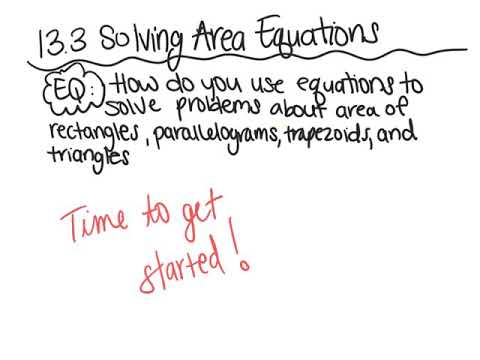 13.3 Solving Area Equations
EQ: How do you use equations to
solve problems about area of
rectangles, parallelograms, trapezoids, and
triangles
Time to get
started!